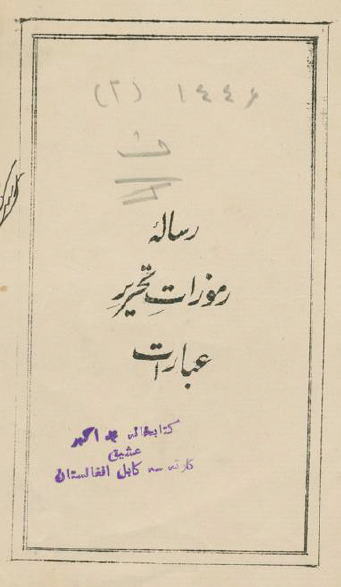 ۱۴۴۶ (۲)
رسالهٔ
رموزاتِ تحریرِ
عبارات
کتابخانه محمد اکبر
عشیق
کارته سه کابل افغانستان